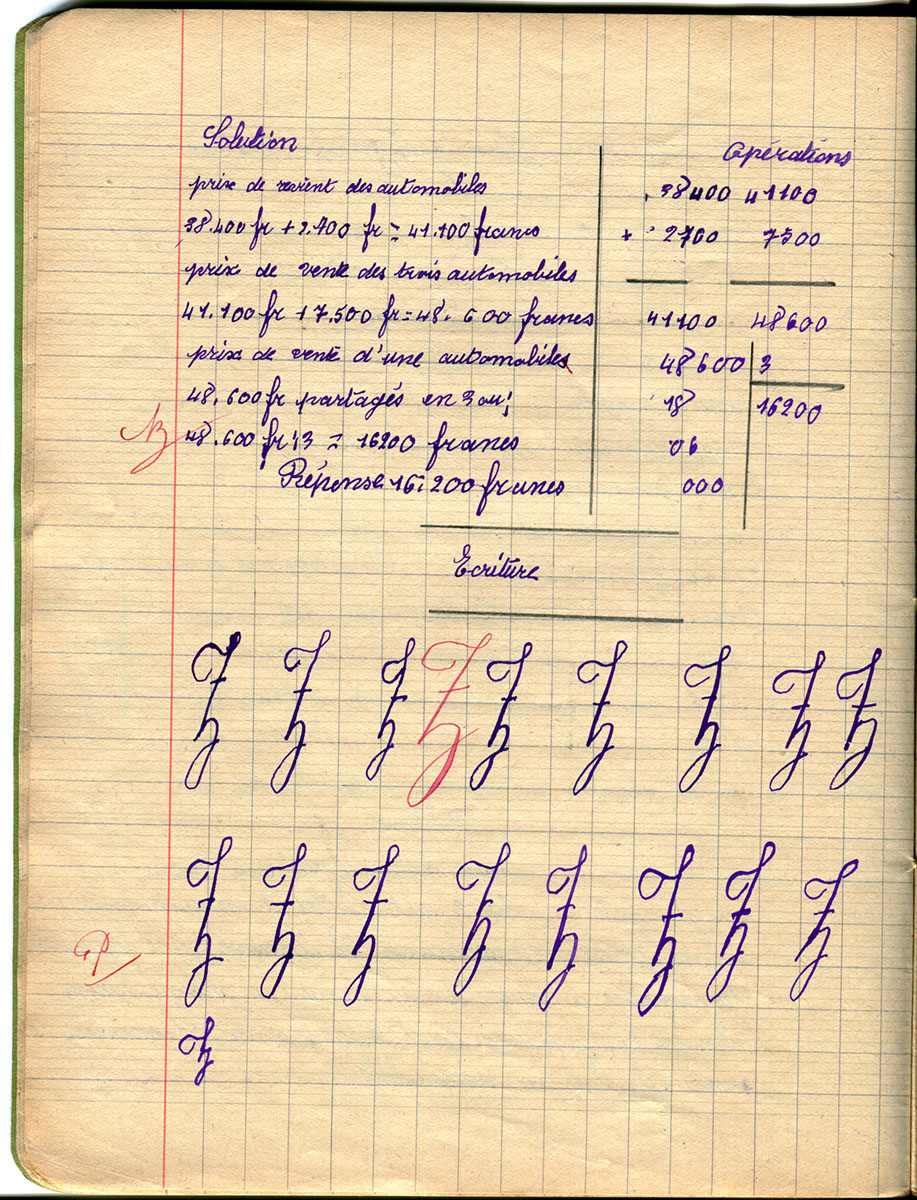 Solution
prix de revient des automobiles
38.400 fr + 2.700 fr = 41.100 francs
prix de vente des trois automobiles
41.100 fr + 7.500 fr = 48.600 francs
prix de vente d'une automobiles
48.600 fr partagés en 3 ou:
48.600 fr : 3 = 16200 francs
Réponse 16.200 francs
Opérations
38400 41100
+ 2700 7500
41100 48600
48600 3
18 16200
06
000
Ecriture
Z Z Z Z Z Z Z Z Z
Z Z Z Z Z Z Z Z
Z